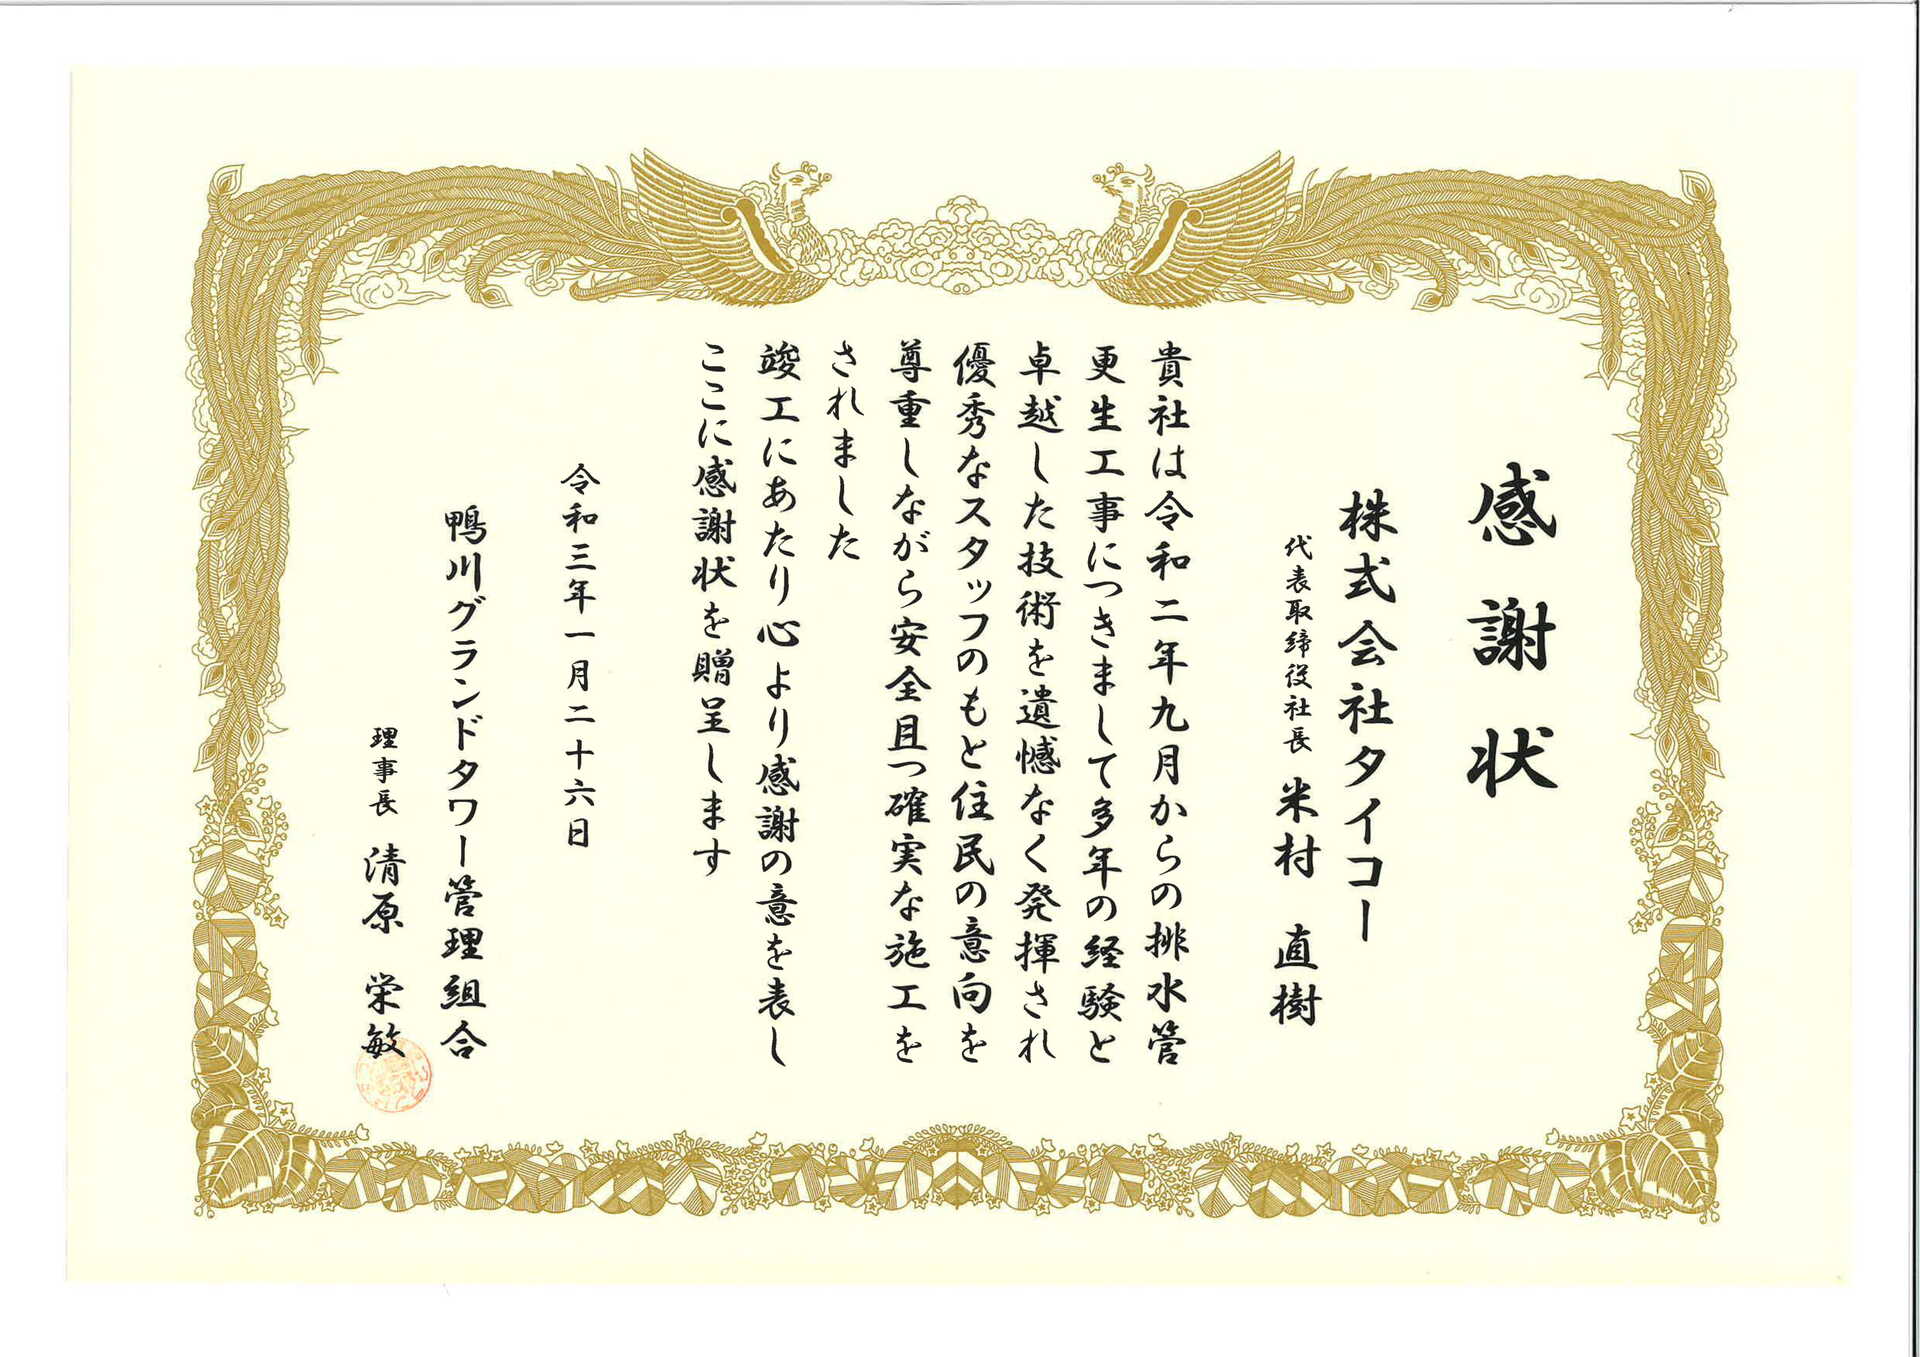 感謝状
株式会社タイコー
代表取締役社長 米村 直樹
貴社は令和二年九月からの排水管
更生工事につきまして多年の経験と
卓越した技術を遺憾なく発揮され
優秀なスタッフのもと住民の意向を
尊重しながら安全且つ確実な施工を
されました
竣工にあたり心より感謝の意を表し
ここに感謝状を贈呈します
令和三年一月二十六日
鴨川グランドタワー管理組合
理事長 清原 栄敏